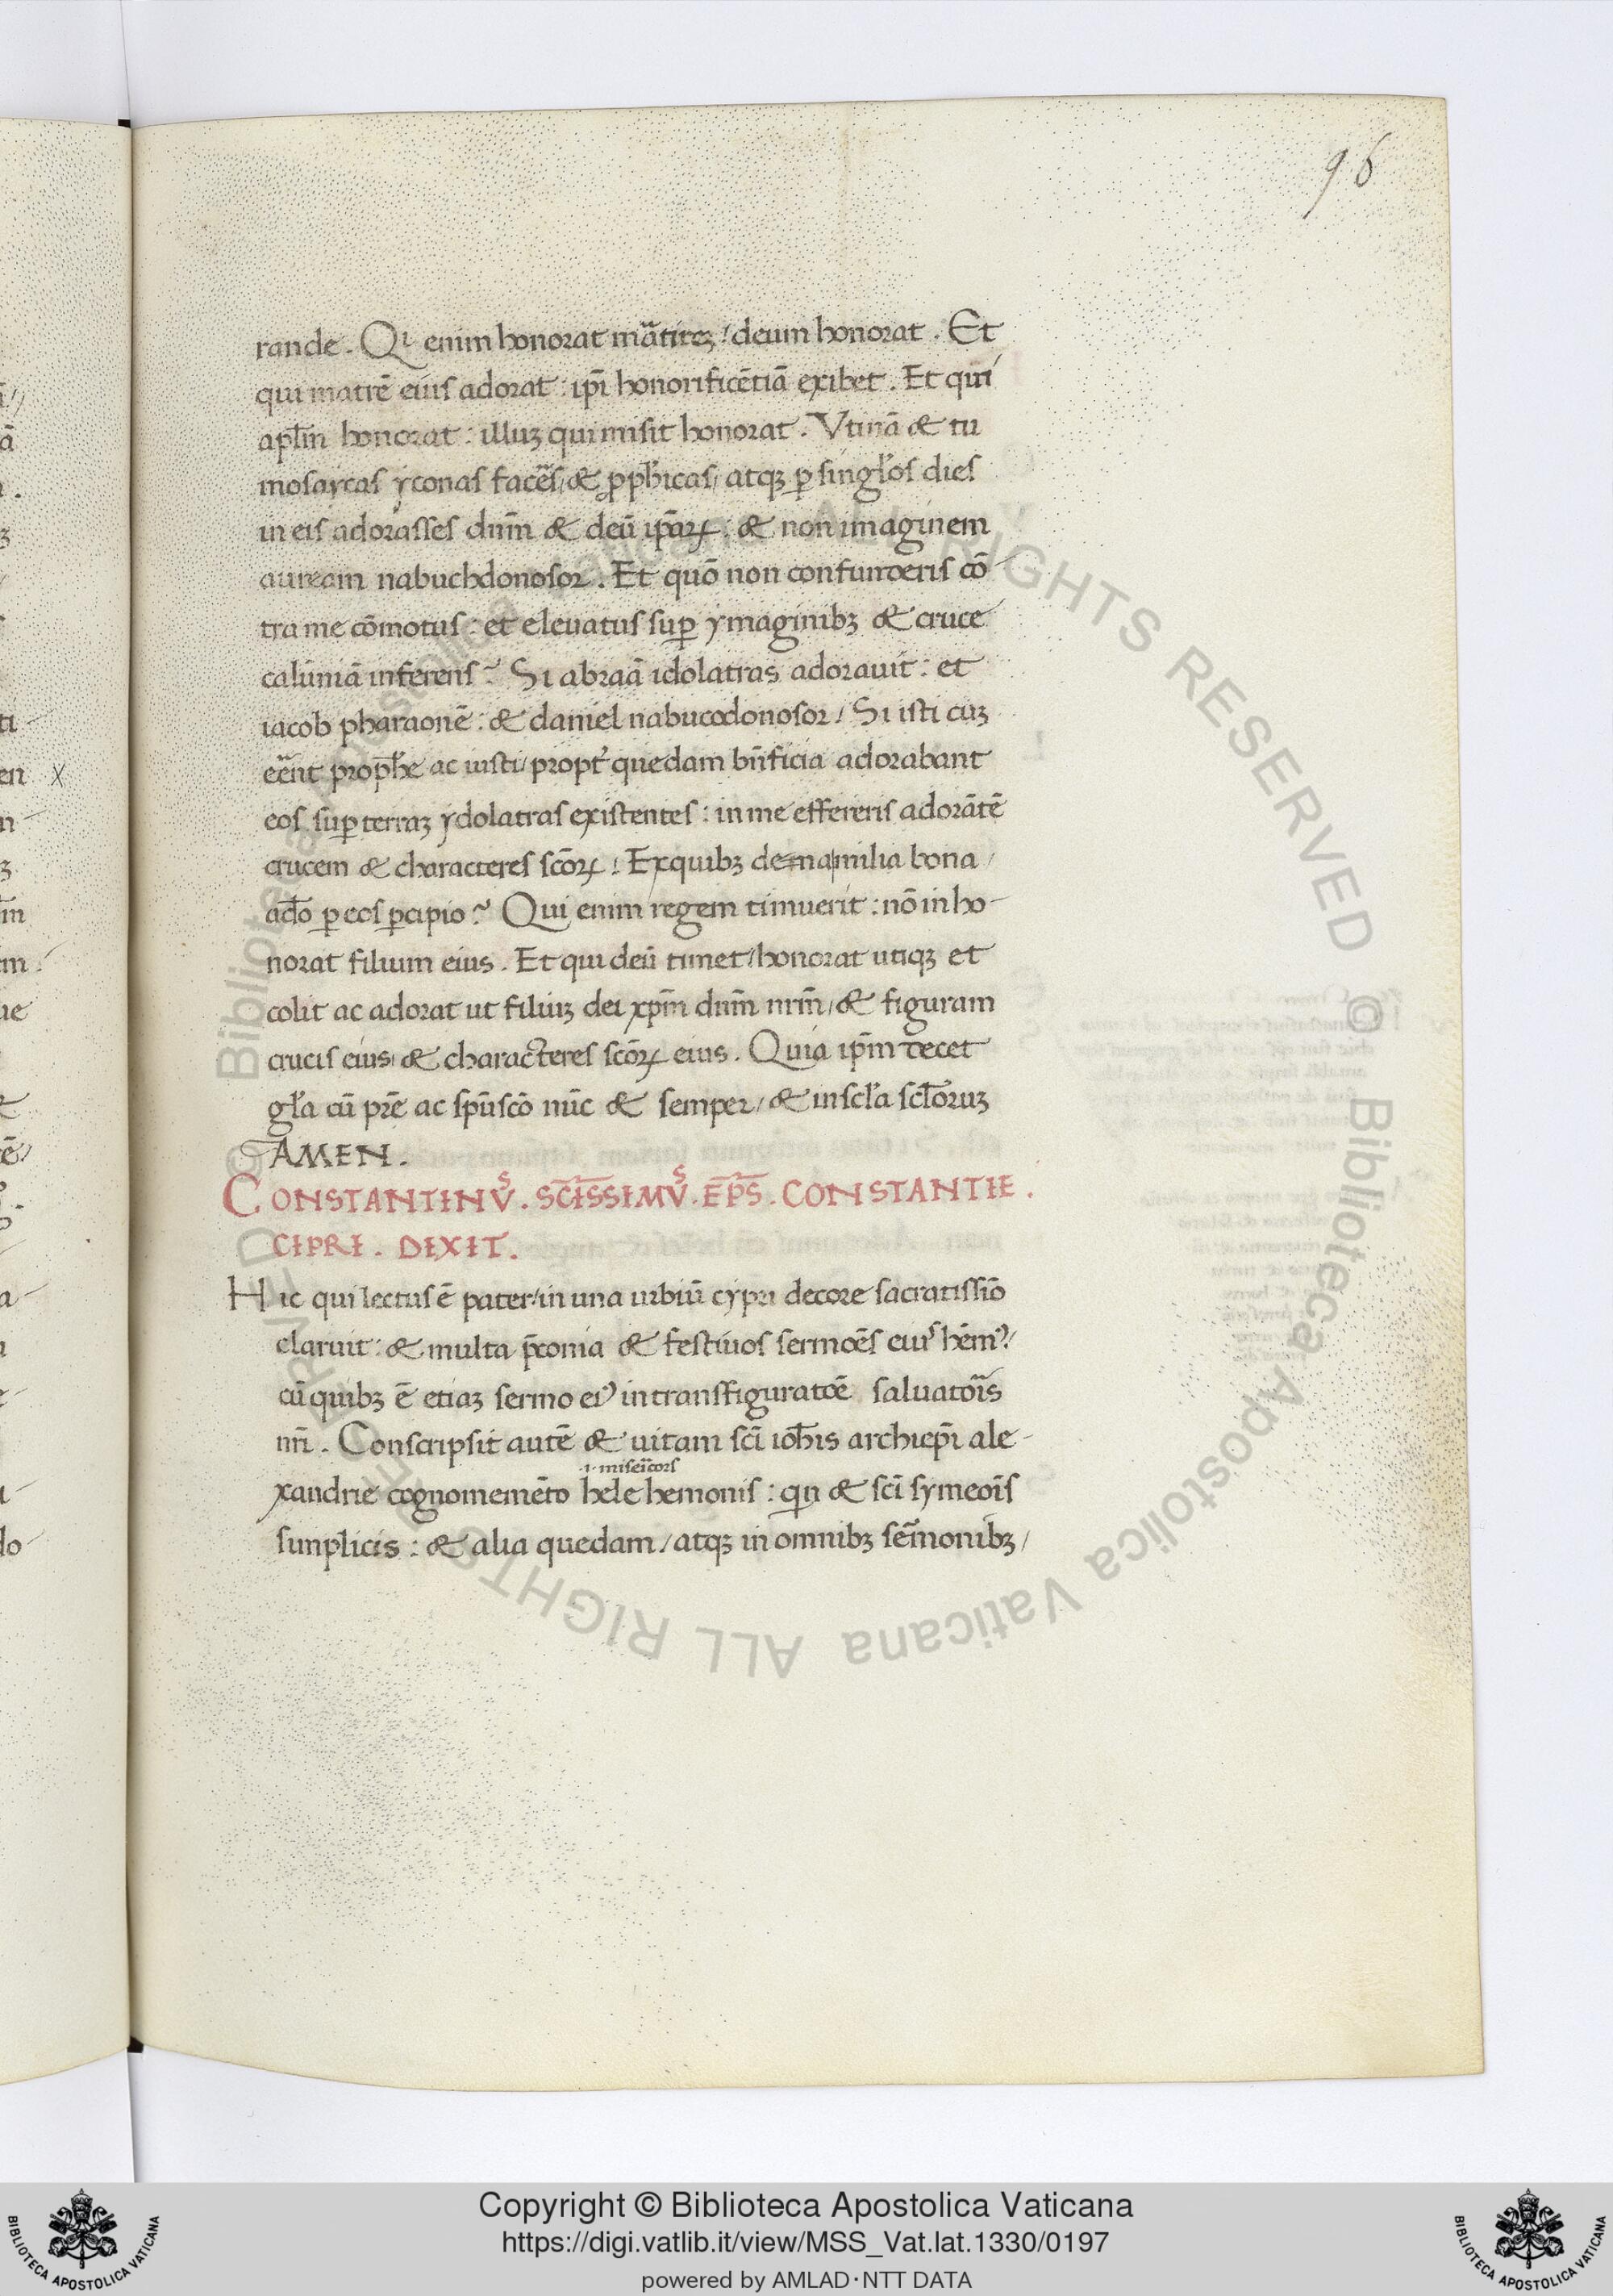 96
rande. Qi enim honorat mr̃atireꝫ / deum honorat. Et
qui matrē eius adorat : ip̄i honorificētiā exibet. Et qui
apl̄m honorat : illuꝫ qui misit honorat. Vtinā & tu
mosaycas yconas facẽs, & ꝓph̄icas, atqꝫ ꝑ singl̄os dies
in eis adorasses dnm̄ & deū ip̄arꝝ : & non imaginem
auream nabuchdonosor. Et quō non confunderis cō-
tra me cōmotus : et eleuatus suꝑ ymaginibꝫ & cruce
calūniā inferens? Si abraā idolatras adorauit : et
iacob pharaonē : & daniel nabucodonosor / Si isti cuꝫ
eẽnt proph̄e ac iusti / propt̄ quedam bn̄ficia adorabant
eos suꝑ terraꝫ ydolatras existentes : in me effereris adorātē
crucem & characteres scōrꝝ! Ex quibꝫ dena milia bona /
a dō ꝑ eos ꝑcipio? Qui enim regem timuerit : nō inho-
norat filium eius. Et qui deū timet / honorat utiqꝫ et
colit ac adorat ut filiuꝫ dei xp̄m dnm̄ nrm̄, & figuram
crucis eius, & characteres scōrꝝ eius. Quia ip̄m decet
gl̄a cū prē ac spū scō nūc & semper / & in scl̄a scl̄oruꝫ
AMEN.
CONSTANTINVS. SC̄ISSIMVS. EP̄S. CONSTANTIE.
CIPRI. DIXIT.
Hic qui lectus ē pater / in una urbiū cypri decore sacratissīo
claruit : & multa p̄conia & festiuos sermoēs eiuˢ hēmꝰ /
cū quibꝫ ē etiaꝫ sermo eiꝰ in transfiguratōē saluatoīs
nrī. Conscripsit autē & uitam scī ioh̄is archiep̄i ale-
.i. misericors
xandrie cognomēmēto hele hemonis : quī & scī symeoīs
simplicis : & alia quedam / atqꝫ in omnibꝫ sẽmonibꝫ /
Copyright © Biblioteca Apostolica Vaticana
https://digi.vatlib.it/view/MSS_Vat.lat.1330/0197
powered by AMLAD · NTT DATA
BIBLIOTECA APOSTOLICA VATICANA
BIBLIOTECA APOSTOLICA VATICANA
© Biblioteca Apostolica Vaticana ALL RIGHTS RESERVED
© Biblioteca Apostolica Vaticana ALL RIGHTS RESERVED